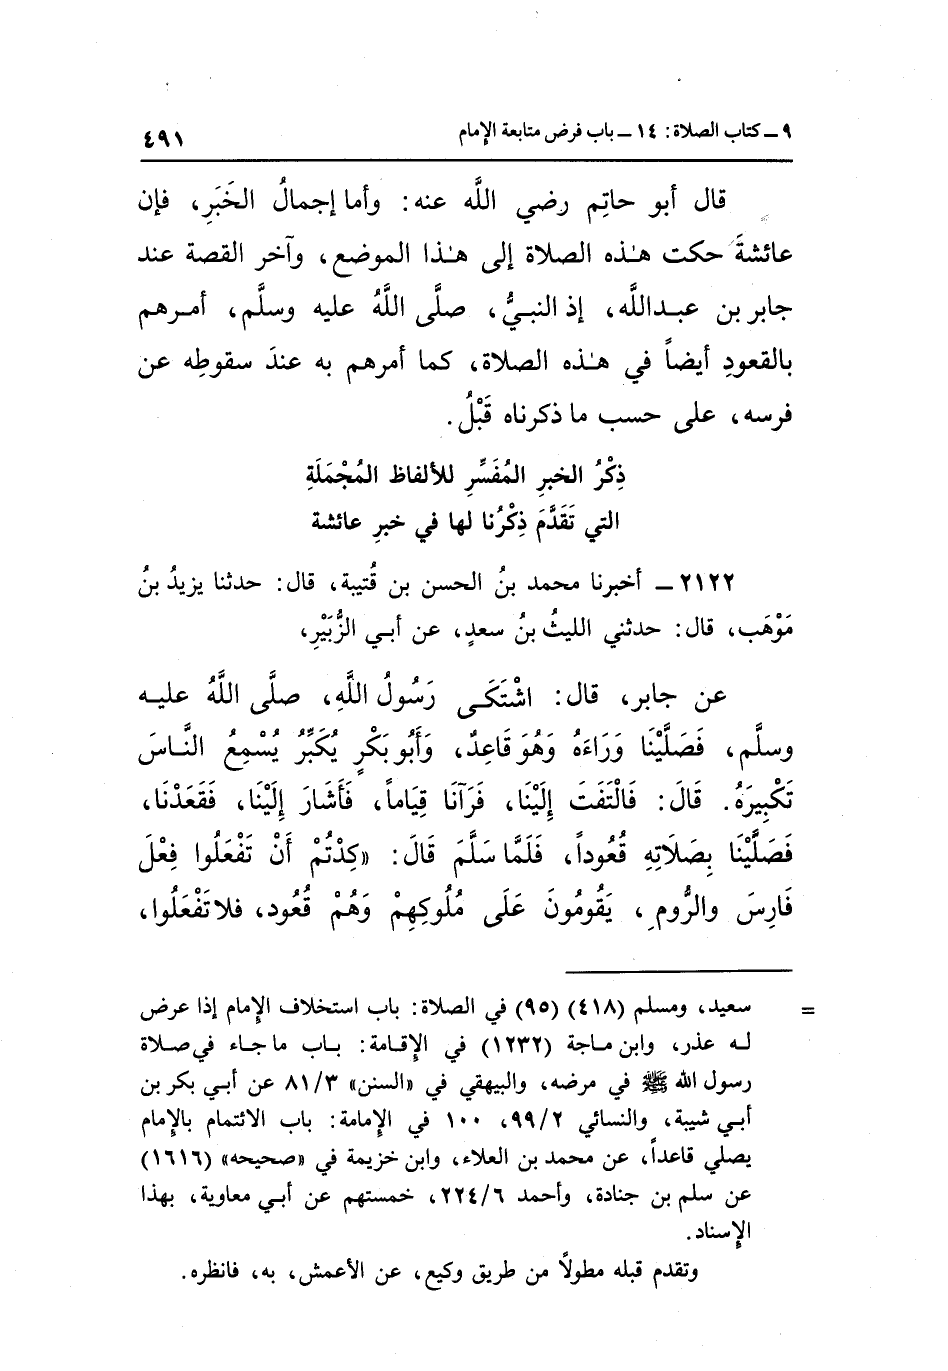 ٩ ـ كتاب الصلاة: ١٤ ـ باب فرض متابعة الإمام
٤٩١
قال أبو حاتِم رضي اللَّه عنه: وأما إجمالُ الخَبَرِ، فإن
عائشةَ حكت هـٰذه الصلاة إلى هـٰذا الموضع، وآخر القصة عند
جابر بن عبداللَّه، إذ النبيُّ، صلَّى اللَّهُ عليه وسلَّم، أمرهم
بالقعودِ أيضاً في هـٰذه الصلاة، كما أمرهم به عندَ سقوطِه عن
فرسه، على حسب ما ذكرناه قَبْلُ.
ذِكْرُ الخبرِ المُفَسِّرِ للألفاظ المُجْمَلَةِ
التي تَقَدَّمَ ذِكْرُنا لها في خبرِ عائشة
٢١٢٢ ـ أخبرنا محمد بنُ الحسن بن قُتيبة، قال: حدثنا يزيدُ بنُ
مَوْهَب، قال: حدثني الليثُ بنُ سعدٍ، عن أبي الزُّبَيْرِ،
عن جابر، قال: اشْتَكَى رَسُولُ اللَّهِ، صلَّى اللَّهُ عليه
وسلَّم، فَصَلَّيْنَا وَرَاءَهُ وَهُوَ قَاعِدٌ، وَأَبُو بَكْرٍ يُكَبِّرُ يُسْمِعُ النَّاسَ
تَكْبِيرَهُ. قَالَ: فَالْتَفَتَ إِلَيْنَا، فَرَآنَا قِيَاماً، فَأَشَارَ إِلَيْنَا، فَقَعَدْنَا،
فَصَلَّيْنَا بِصَلَاتِهِ قُعُوداً، فَلَمَّا سَلَّمَ قَالَ: «كِدْتُمْ أَنْ تَفْعَلُوا فِعْلَ
فَارِسَ والرُّومِ، يَقُومُونَ عَلَى مُلُوكِهِمْ وَهُمْ قُعُود، فلا تَفْعَلُوا،
= سعيد، ومسلم (٤١٨) (٩٥) في الصلاة: باب استخلاف الإمام إذا عرض
له عذر، وابن ماجة (١٢٣٢) في الإقامة: باب ما جاء في صلاة
رسول الله ﷺ في مرضه، والبيهقي في «السنن» ٨١/٣ عن أبي بكر بن
أبي شيبة، والنسائي ٩٩/٢، ١٠٠ في الإمامة: باب الائتمام بالإمام
يصلي قاعداً، عن محمد بن العلاء، وابن خزيمة في «صحيحه» (١٦١٦)
عن سلم بن جنادة، وأحمد ٢٢٤/٦، خمستهم عن أبي معاوية، بهذا
الإسناد.
وتقدم قبله مطولاً من طريق وكيع، عن الأعمش، به، فانظره.